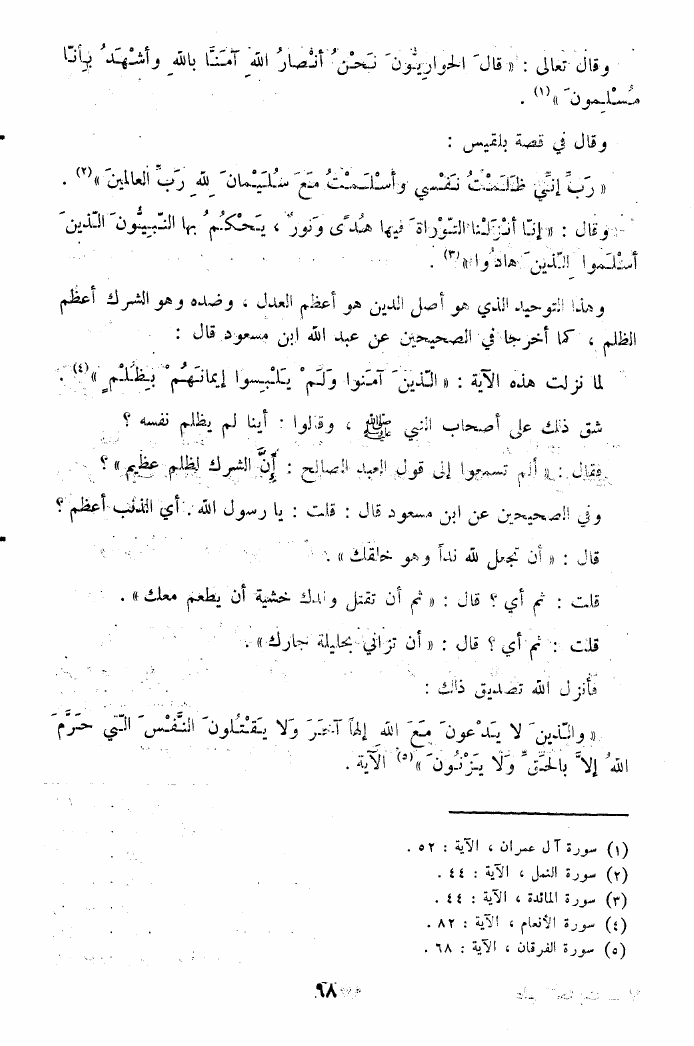 وقال تعالى : « قالَ الحواريُّونَ نَحْنُ أَنْصارُ اللهِ آمَنَّا باللهِ وأشْهَدُ بأنَّا
مُسْلِمونَ »(١) .
وقال في قصة بلقيس :
« رَبِّ إنِّي ظَلَمْتُ نَفْسي وأسْلَمْتُ مَعَ سُلَيْمانَ لِلهِ رَبِّ العالمينَ »(٢) .
وقال : « إنّا أنْزَلْنا التَّوْراةَ فيها هُدًى وَنورٌ ، يَحْكُمُ بها النَّبِيُّونَ الَّذينَ
أسْلَموا لِلَّذينَ هادُوا »(٣) .
وهذا التوحيد الذي هو أصل الدين هو أعظم العدل ، وضده وهو الشرك أعظم
الظلم ، كما أخرجا في الصحيحين عن عبد الله ابن مسعود قال :
لما نزلت هذه الآية : « الَّذينَ آمَنوا وَلَمْ يَلْبِسوا إيمانَهُمْ بِظُلْمٍ »(٤) .
شق ذلك على أصحاب النبي ﷺ ، وقالوا : أينا لم يظلم نفسه ؟
فقال : « ألم تسمعوا إلى قول العبد الصالح : إنَّ الشرك لظلم عظيم » ؟
وفي الصحيحين عن ابن مسعود قال : قلت : يا رسول الله . أي الذنب أعظم ؟
قال : « أن تجعل لله نداً وهو خلقك » .
قلت : ثم أي ؟ قال : « ثم أن تقتل ولدك خشية أن يطعم معك » .
قلت : ثم أي ؟ قال : « أن تزاني بحليلة جارك » .
فأنزل الله تصديق ذلك :
« والَّذينَ لا يَدْعونَ مَعَ اللهِ إلهاً آخَرَ وَلا يَقْتُلونَ النَّفْسَ الَّتي حَرَّمَ
اللهُ إلاَّ بالحَقِّ وَلَا يَزْنُونَ »(٥) الآية .
(١) سورة آل عمران ، الآية : ٥٢ .
(٢) سورة النمل ، الآية : ٤٤ .
(٣) سورة المائدة ، الآية : ٤٤ .
(٤) سورة الأنعام ، الآية : ٨٢ .
(٥) سورة الفرقان ، الآية : ٦٨ .
٩٨